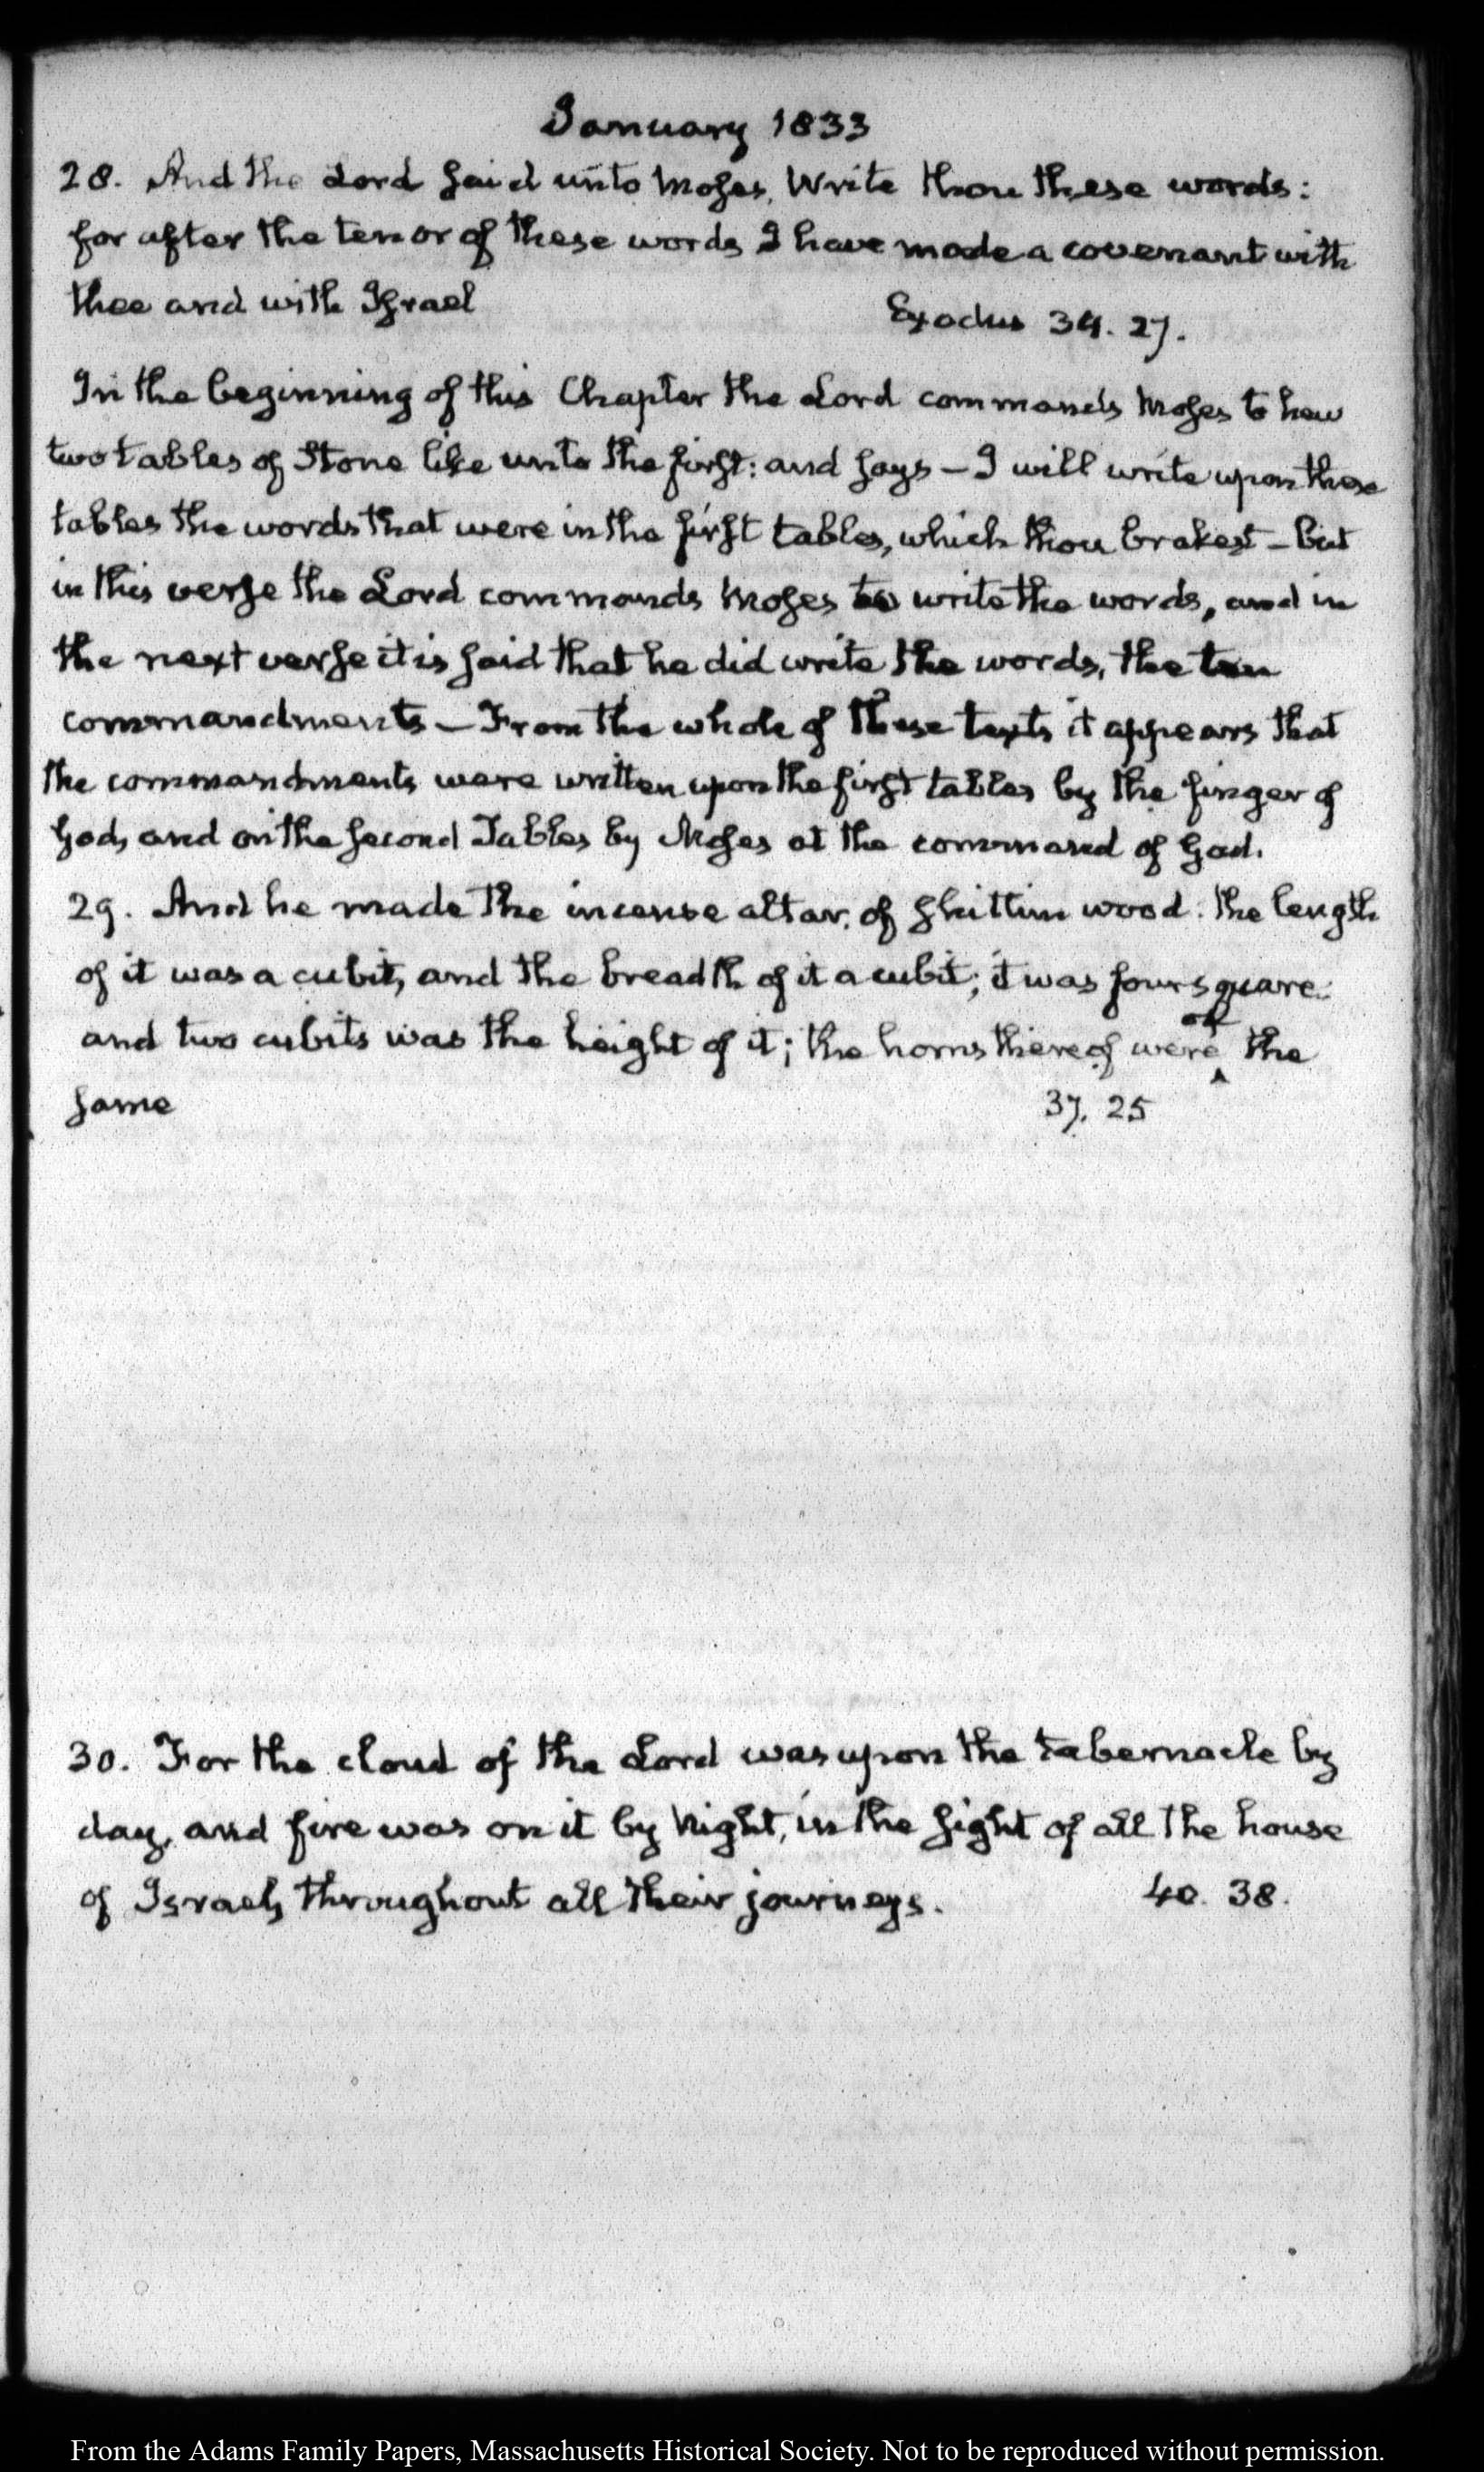 January 1833
28. And the Lord said unto Moses, Write thou these words:
for after the tenor of these words I have made a covenant with
thee and with Israel Exodus 34. 27.
In the beginning of this Chapter the Lord commands Moses to hew
two tables of Stone like unto the first: and says — I will write upon these
tables the words that were in the first tables, which thou brakest — but
in this verse the Lord commands Moses to write the words, and in
the next verse it is said that he did write the words, the ten
commandments — From the whole of these texts it appears that
the commandments were written upon the first tables by the finger of
God, and on the second Tables by Moses at the command of God.
29. And he made the incense altar, of shittim wood: the length
of it was a cubit, and the breadth of it a cubit; it was foursquare:
and two cubits was the height of it; the horns thereof were of the
same 37. 25
30. For the cloud of the Lord was upon the tabernacle by
day, and fire was on it by Night, in the sight of all the house
of Israel, throughout all their journeys. 40. 38.
From the Adams Family Papers, Massachusetts Historical Society. Not to be reproduced without permission.